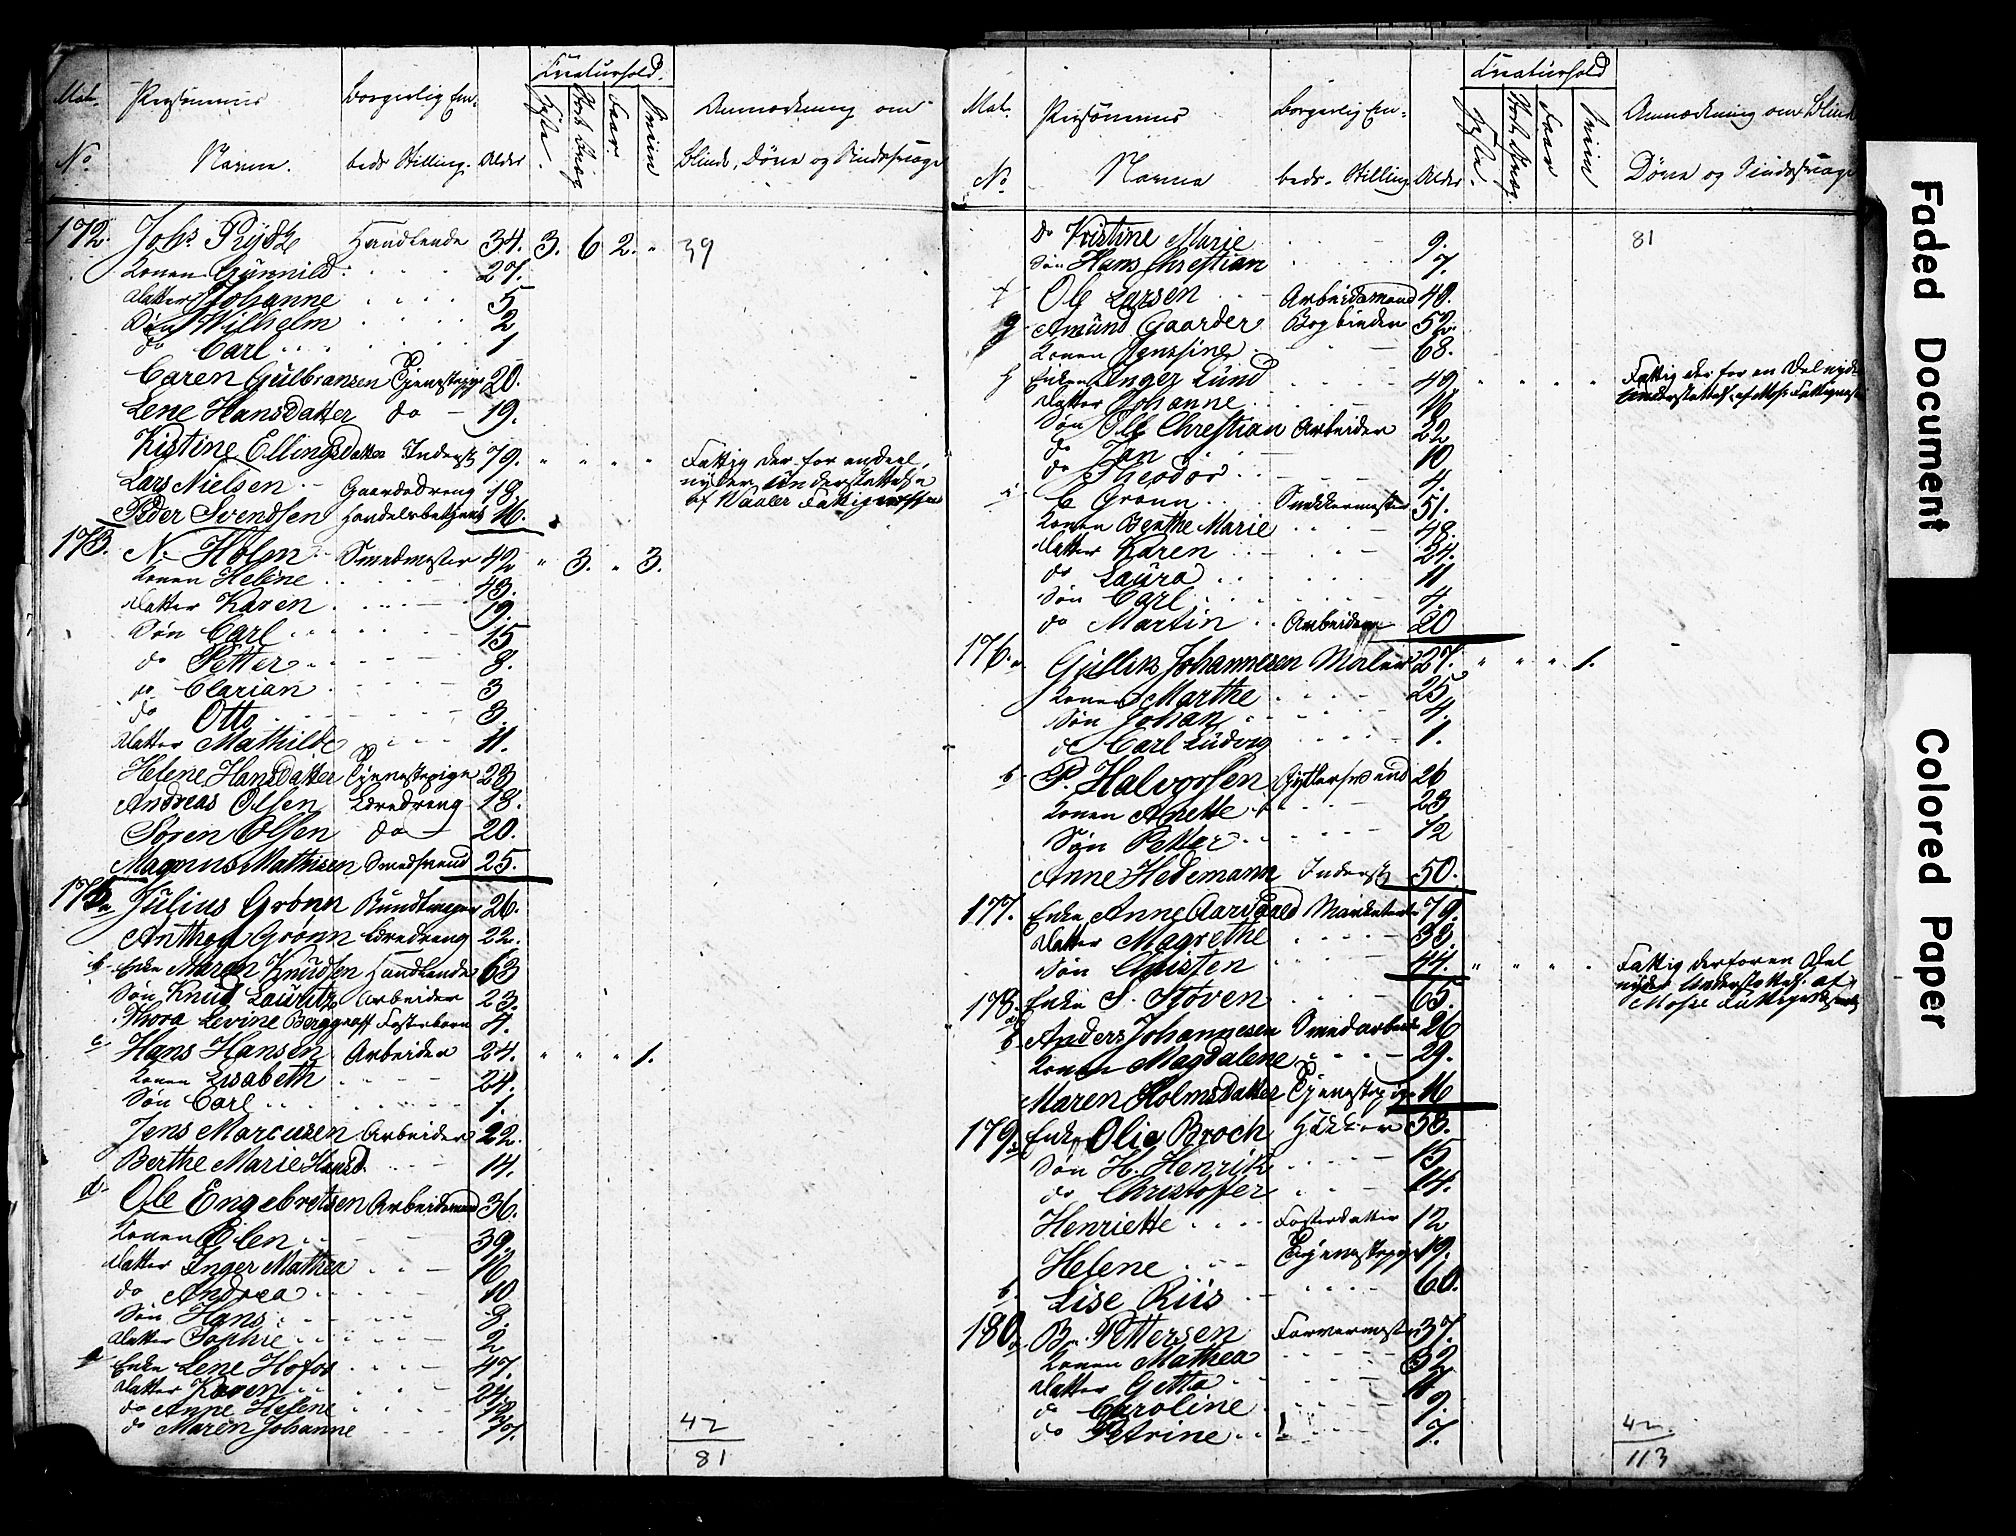 Mat. Personernes Borgerlig Em- Creaturhold. Anmærkning om
No Navne. beds Stilling. Alder Heste. Stort Qvæg Faar. Sviin Blinde, Døve og Sindssvage
172. Johs Prydz Handlende 34. 3. 6 2. " 39
Konen Gunnild 27.
Datter Johanne 5
Søn Wilhelm 2
do Carl 1
Caren Gulbransen Tjenestepige 20.
Lene Hansdatter do 19.
Kistine Ellingsdatter Inderst 79. " " " " Fattig der for endeel,
nyder Understøttelse
Lars Nielsen Gaardsdreng 18. af Vaaler Fattigcasse
Peder Svendsen 16.
173. N. Holm Smedmester 42 " 3. " 3.
Konen Helene 43.
Datter Karen 19.
Søn Carl 15
do Petter 8.
do Clarian 3
do Otto 3.
Datter Mathilde 11.
Helene Hansdatter Tjenestepige 23
Andreas Olsen Læredreng 18.
Søren Olsen do 20.
Magnus Mathisen Smedsvend 25.
175a Julius Grønn Bundtmager 26.
Anthon Gronn Læredreng 22.
b. Enke Maren Knudsen Handlende 63
Søn Knud Lauritz Arbeider 23
Thora Levine Berggraff Fosterbarn 4.
c Hans Hansen Arbeider 24. " " " 1.
Konen Lisabeth 24.
Søn Carl 1.
Jens Marcusen Arbeider 22.
Berthe Marie Hansd. 14.
d. Ole Engebretsen Arbeidsmand 36.
Konen Elen 39.
Datter Inger Mathea 16
do Andrea 10
Søn Hans 8.
Datter Sophie 2
e Enke Lene Hofos 47.
Datter Karen 24.
do Anne Helene 18
do Maren Johanne 17. 42
81
Mat. Personernes Borgerlig Em- Creaturhold Anmærkning om Blinde
No Navne beds. Stilling Alder Heste. Stort Qvæg. Faar Sviin Døve og Sindssvage
do Kristine Marie 9. 81
Søn Hans Chrestian 7.
f Ole Larsen Arbeidsmand 48.
g Amund Gaarder Bogbinder 52.
Konen Jenssine 68.
h Enken Inger Lund 49. " " " " Fattig der for en Del nyder
Datter Johanne 16 Understøttels. af Moss Fattigcasse
Søn Ole Chrestian Arbeider 22
do Jan 10
do Theodor 4.
i C Grønn Snekkermester 51.
Konen Berthe Marie 48.
Datter Karen 24.
do Laura 11
Søn Carl 4.
do Martin Arbeider 20
176. a Gullik Johannesen Maler 27. " " " 1.
Konen Marthe 25.
Søn Johan 4.
do Carl Ludvig 1.
b P. Halvorsen Gjtlersvend 26
Konen Anette 23
Søn Petter 1/2
Anne Hedemann Inderst 50.
177. Enke Anne Aarsvold 79.
Datter Magrethe 33.
Søn Christen 44. " " " " Fattig der for en Del
nyder Understøttels. af
178. a Enke S. Støven 65. Moss Fattigcasse
b Anders Johannesen Smedarbeider 26
Konen Magdalene 29.
Maren Holmsdatter Tjenestepige 16
179. a Enke Olia Broch Høker 53.
Søn H. Henrik 15
do Christoffer 14.
Henriette Fosterdatter 12
Helene Tjenestepige 19.
b. Lise Riis 60.
180. a B. Pettersen Farvermester 37.
Konen Mathea 32
Datter Getta 11
do Caroline 9.
do Petrine 7. 42.
113
Faded Document
Colored Paper